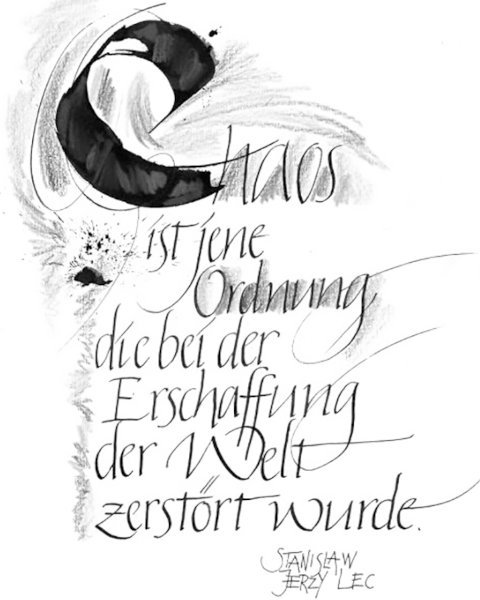 Chaos
ist jene
Ordnung
die bei der
Erschaffung
der Welt
zerstört wurde.
STANISLAW
JERZY LEC